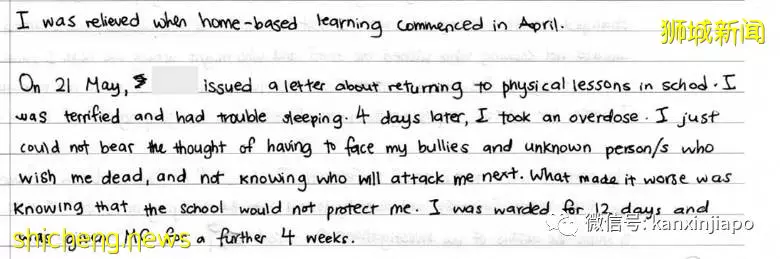 I was relieved when home-based learning commenced in April.
狮城新闻
On 21 May, issued a letter about returning to physical lessons in school. I
was terrified and had trouble sleeping. 4 days later, I took an overdose. I just
could not bear the thought of having to face my bullies and unknown person/s who
wish me dead, and not knowing who will attack me next. What made it worse was
knowing that the school would not protect me. I was warded for 12 days and
微信号: kanxinjiapo
was given MC for a further 4 weeks.
shicheng.news